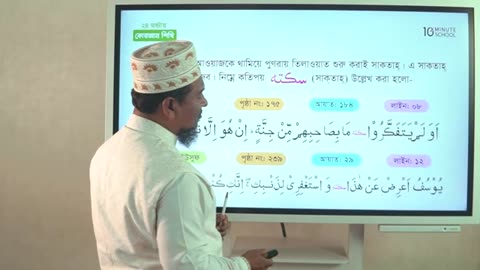 ২৪ ঘণ্টায়
কোরআন শিখি
10 MINUTE SCHOOL
আওয়াজকে থামিয়ে পুণরায় তিলাওয়াত শুরু করাই সাকতাহ। এ সাকতাহ
নিম্নে কতিপয় سكته (সাকতাহ) উল্লেখ করা হলো-
পৃষ্ঠা নং: ১৭৫ আয়াত: ১৮৪ লাইন: ০৮
اَوَلَمْ يَتَفَكَّرُوْا مَا بِصَاحِبِهِمْ مِّنْ جِنَّةٍ ؕ اِنْ هُوَ اِلَّا
পৃষ্ঠা নং: ২৩৯ আয়াত: ২৯ লাইন: ১২
يُوْسُفُ اَعْرِضْ عَنْ هٰذَا وَ اسْتَغْفِرِیْ لِذَنْۢبِكِ اِنَّكِ